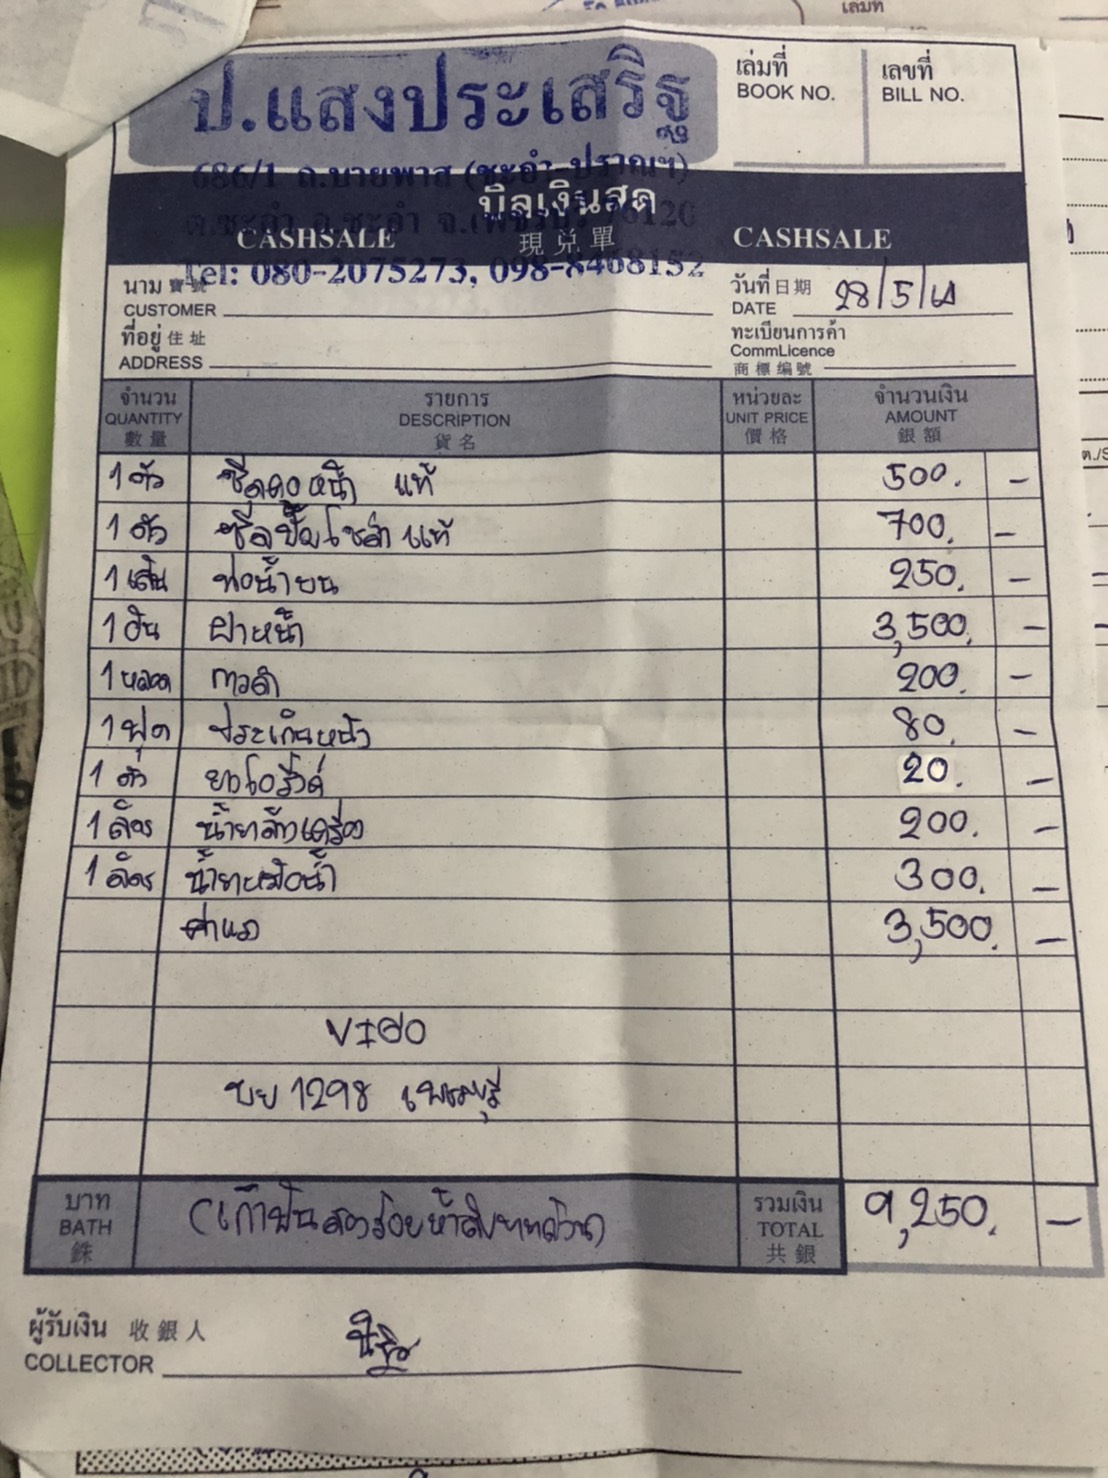 เลมที่
ป.แสงประเสริฐ
เล่มที่ เลขที่
BOOK NO. BILL NO.
686/1 ถ.บายพาส (ชะอำ-ปราณฯ)
บิลเงินสด
ต.ชะอำ อ.ชะอำ จ.เพชรบุรี 76120
CASHSALE 現兌單 CASHSALE
Tel: 080-2075273, 098-8468152
นาม 寶號 วันที่ 日期 28/5/64
CUSTOMER DATE
ที่อยู่ 住址 ทะเบียนการค้า
ADDRESS CommLicence
商標編號
จำนวน รายการ หน่วยละ จำนวนเงิน
QUANTITY DESCRIPTION UNIT PRICE AMOUNT
數量 貨名 價格 銀額
1 ตัว ซีลคอหน้า แท้ 500. -
1 ตัว ซีลปั้มโซล่า แท้ 700. -
1 เส้น ท่อน้ำบน 250. -
1 อัน ฝาหน้า 3,500. -
1 หลอด กาวดำ 200. -
1 ชุด ประเก็นหน้า 80. -
1 ตัว ยางโอริงค์ 20. -
1 ลิตร น้ำยาล้างเครื่อง 200. -
1 ลิตร น้ำยาหม้อน้ำ 300. -
ค่าแรง 3,500. -
VIGO
บย 1298 เพชรบุรี
บาท (เก้าพันสองร้อยห้าสิบบาทถ้วน) รวมเงิน 9,250. -
BATH TOTAL
銖 共銀
ผู้รับเงิน 收銀人
COLLECTOR